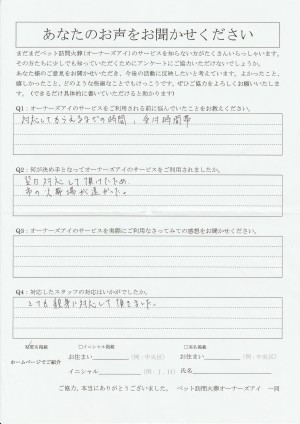 あなたのお声をお聞かせください
まだまだペット訪問火葬(オーナーズアイ)のサービスを知らない方がたくさんいらっしゃいます。
その方たちに少しでも知っていただくためにアンケートにご協力いただけないでしょうか。
あなた様のご意見をお聞かせいただき、今後の活動に反映したいと考えています。よかったこと、
嬉しかったこと、どのような些細なことでもけっこうです。ぜひご協力をよろしくお願いいたします。(できるだけ具体的に書いていただけると助かります)
Q1:オーナーズアイのサービスをご利用される前に悩んでいたことをお教えください。
対応してもらえるまでの時間、受け時間帯
Q2:何が決め手となってオーナーズアイのサービスをご利用されましたか。
翌日対応して頂けたため
市の火葬場が遠かった。
Q3:オーナーズアイのサービスを実際にご利用なさってみての感想をお聞かせください。
Q4:対応したスタッフの対応はいかがでしたか。
とても親身に対応して頂きました。
□イニシャル掲載
□実名掲載
ホームページでご紹介
お住まい
(例:中央区)
お住まい
(例:中央区)
イニシャル
(例:I.H)
氏名
ご協力、本当にありがとうございました。 ペット訪問火葬オーナーズアイ 一同